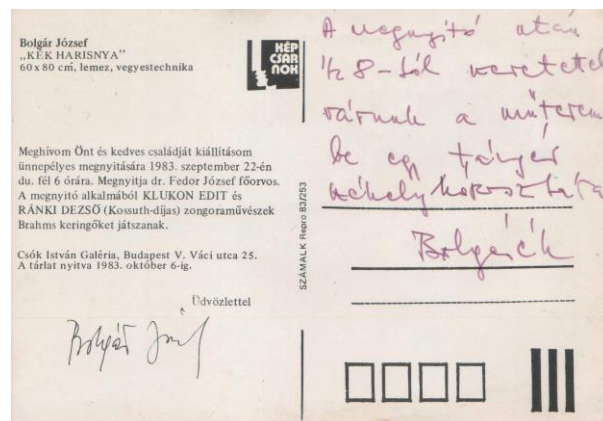 Bolgár József
„KÉK HARISNYA”
60 x 80 cm, lemez, vegyestechnika
KÉP
CSAR
NOK
Meghívom Önt és kedves családját kiállításom
ünnepélyes megnyitására 1983. szeptember 22-én
du. fél 6 órára. Megnyitja dr. Fedor József főorvos.
A megnyitó alkalmából KLUKON EDIT és
RÁNKI DEZSŐ (Kossuth-díjas) zongoraművészek
Brahms keringőket játszanak.
Csók István Galéria, Budapest V. Váci utca 25.
A tárlat nyitva 1983. október 6-ig.
Üdvözlettel
Bolgár József
SZÁMALK Repro 83/253
A megnyitó után
½ 8-tól szeretettel
várunk a műterem
be egy tányér
székely káposztára
Bolgárék